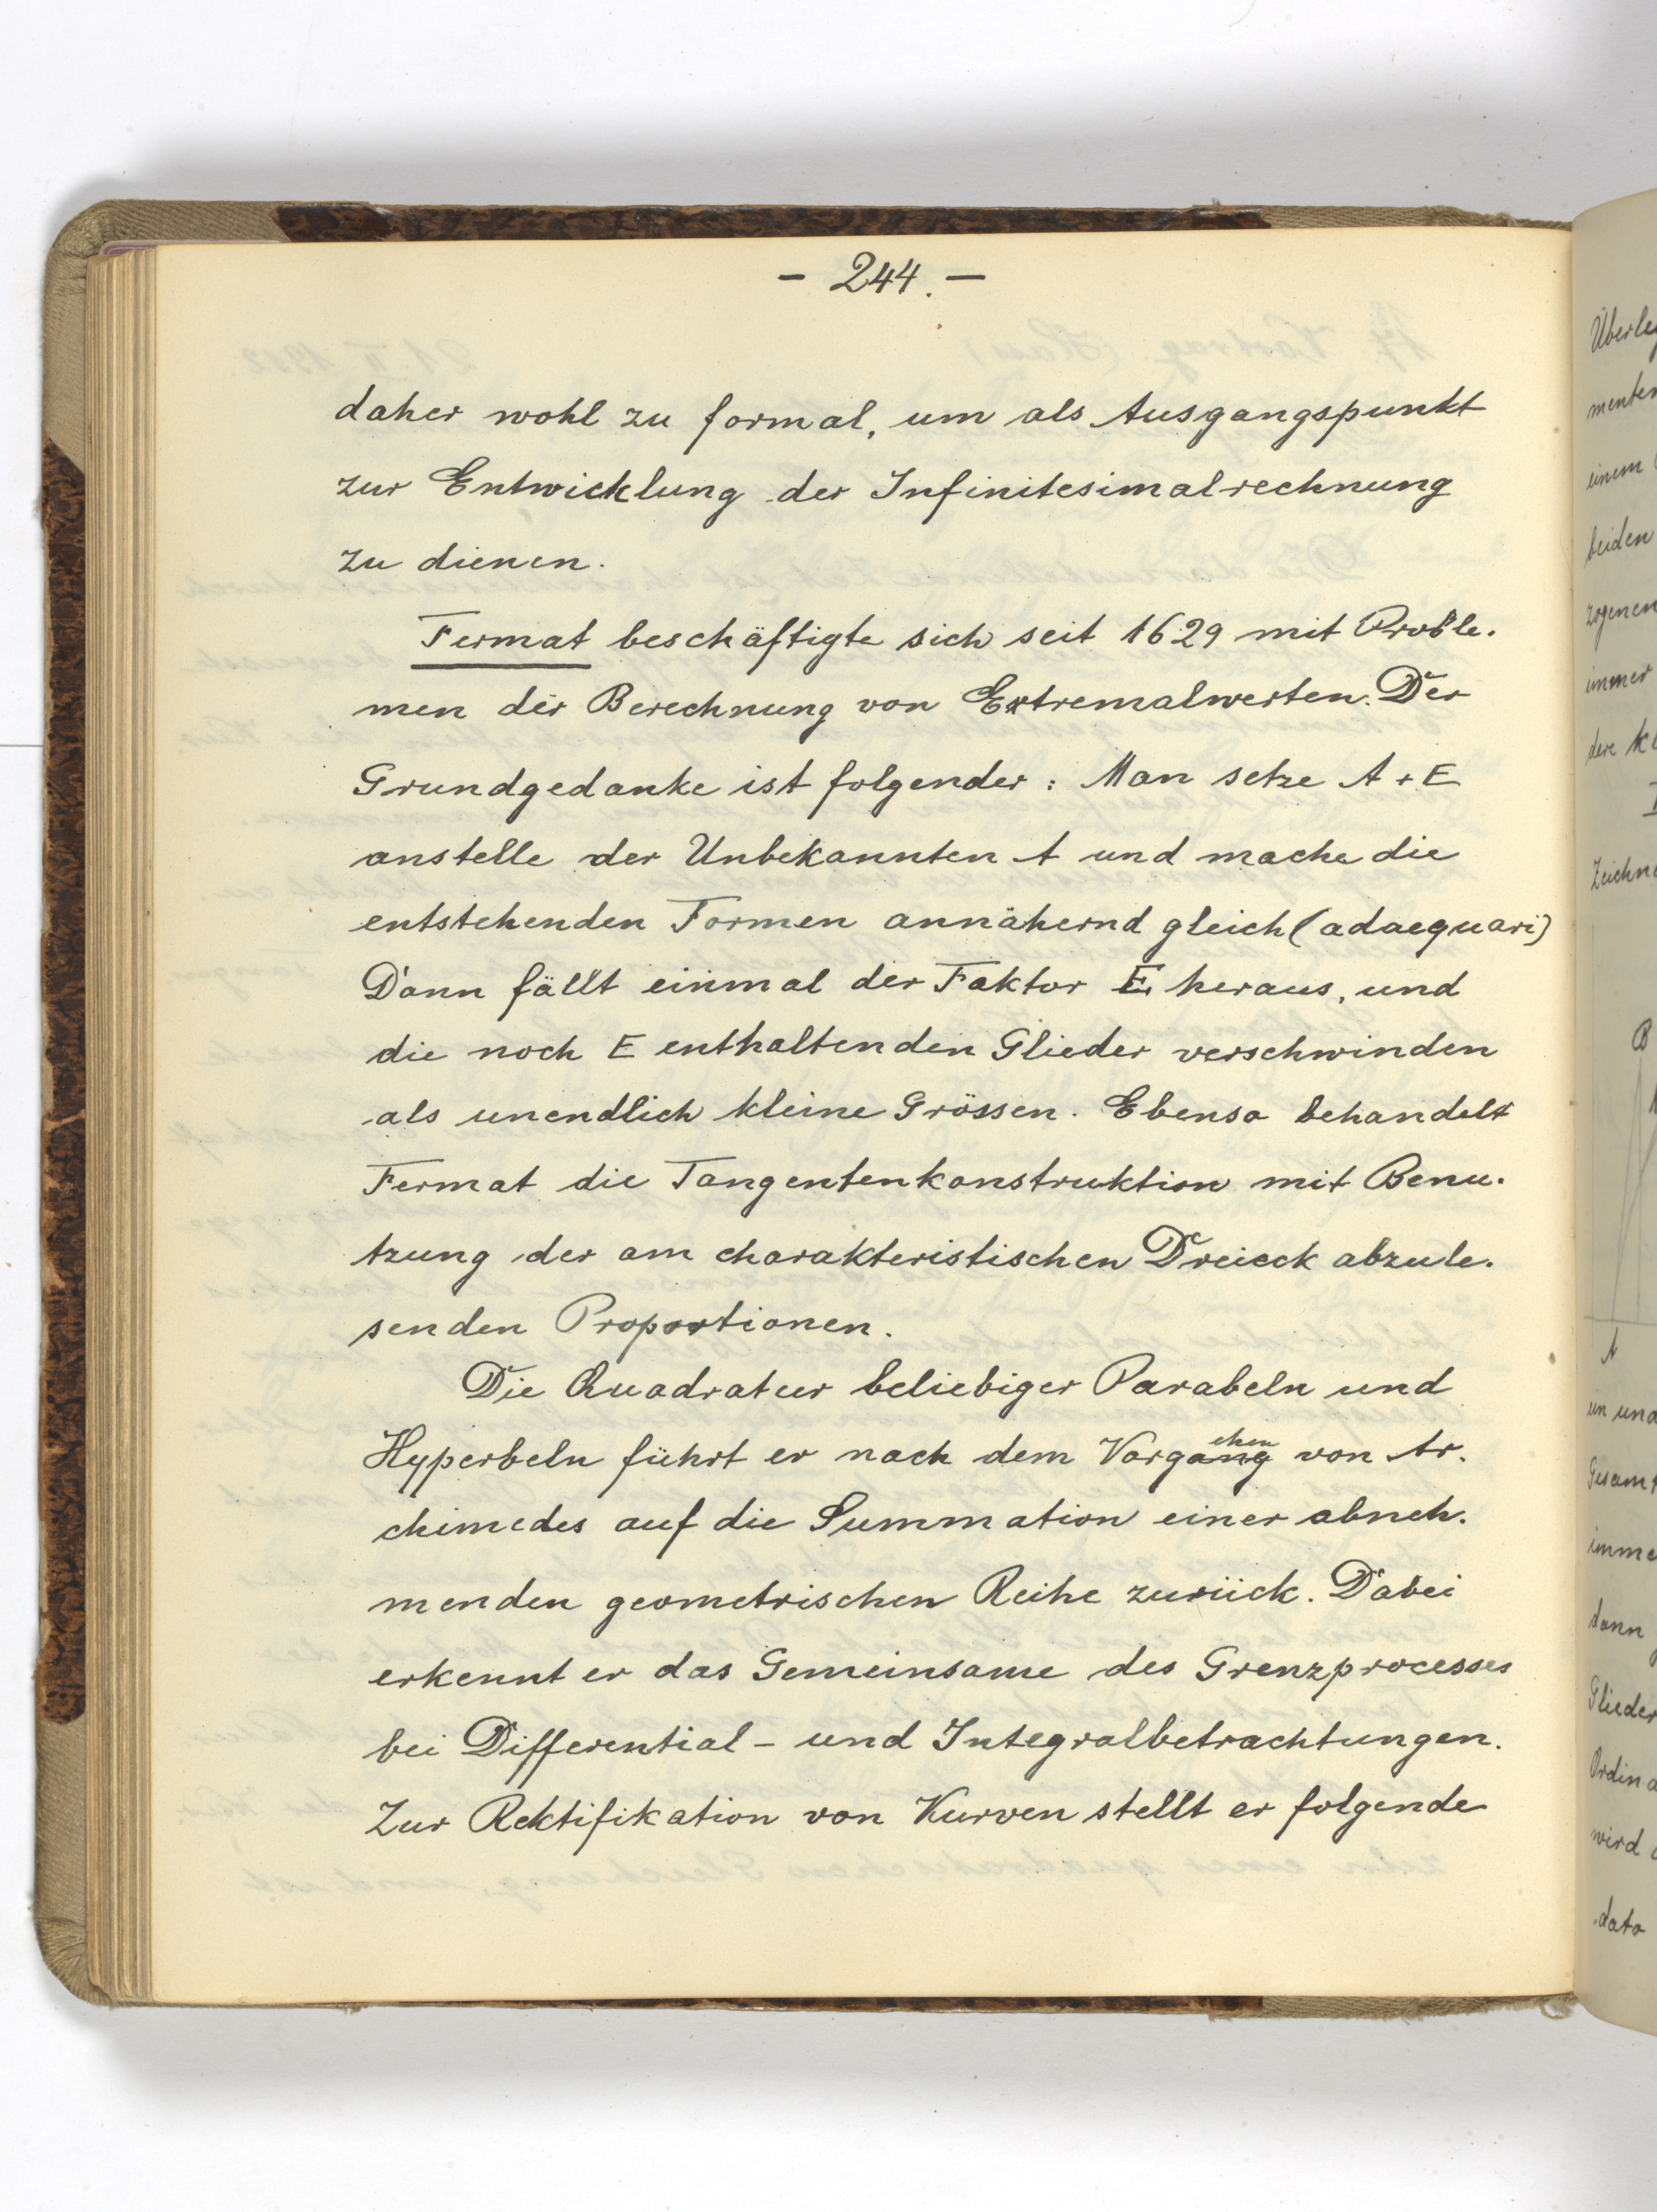 - 244. -
daher wohl zu formal, um als Ausgangspunkt
zur Entwicklung der Infinitesimalrechnung
zu dienen.
Fermat beschäftigte sich seit 1629 mit Proble-
men der Berechnung von Extremalwerten. Der
Grundgedanke ist folgender: Man setze A + E
anstelle der Unbekannten A und mache die
entstehenden Formen annähernd gleich (adaequari)
Dann fällt einmal der Faktor E heraus, und
die noch E enthaltenden Glieder verschwinden
als unendlich kleine Grössen. Ebenso behandelt
Fermat die Tangentenkonstruktion mit Benu-
tzung der am charakteristischen Dreieck abzule-
senden Proportionen.
Die Quadratur beliebiger Parabeln und
Hyperbeln führt er nach dem Vorgang ehen von Ar-
chimedes auf die Summation einer abneh-
menden geometrischen Reihe zurück. Dabei
erkennt er das Gemeinsame des Grenzprocesses
bei Differential- und Integralbetrachtungen.
Zur Rektifikation von Kurven stellt er folgende
Überle
menten
einem
beiden
zogenen
immer
dere
Zeichn
B
A
un und
Gesamt
imme
dann
Glieder
Ordina
wird
dato